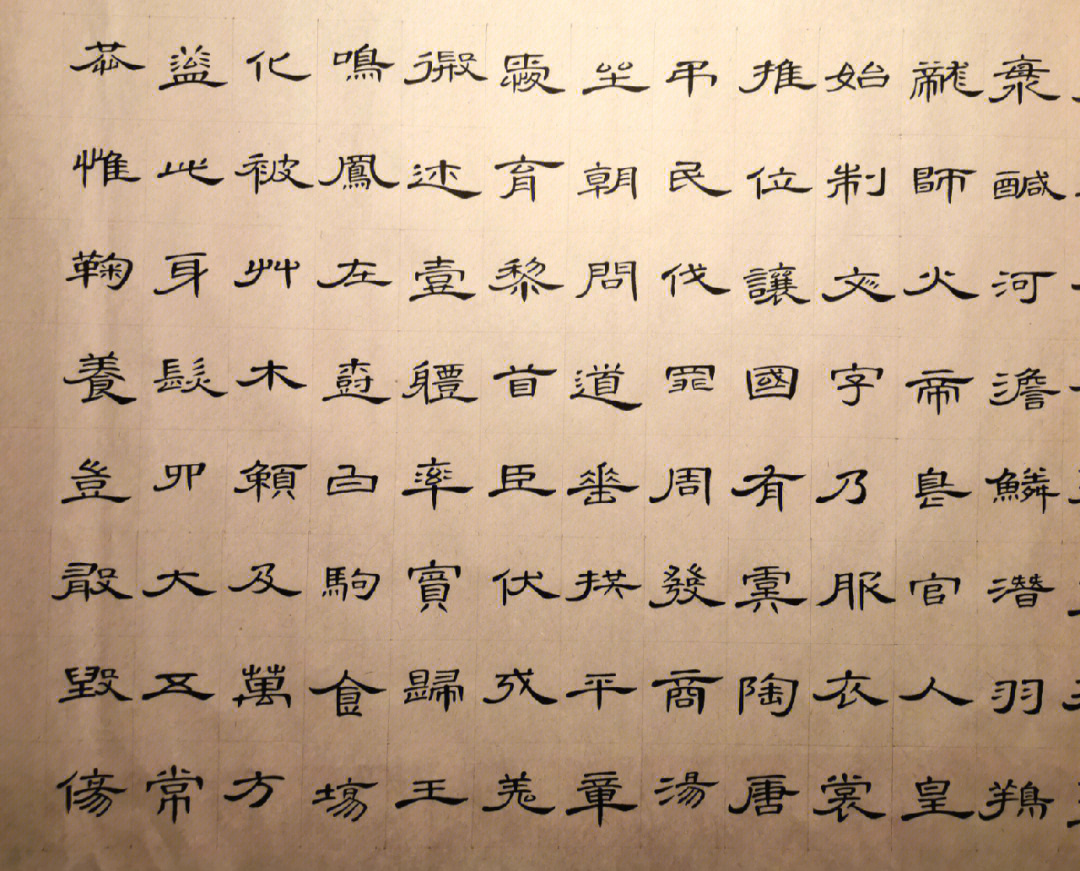 醎河澹鱗潛羽鴹
龍師火帝鳥官人皇
始制文字乃服衣裳
推位讓國有虞陶唐
弔民伐罪周發商湯
坐朝問道垂拱平章
愛育黎首臣伏戎羌
遐邇壹體率賓歸王
鳴鳳在樹白駒食場
化被艸木賴及萬方
蓋此身髮四大五常
恭惟鞠養豈敢毀傷